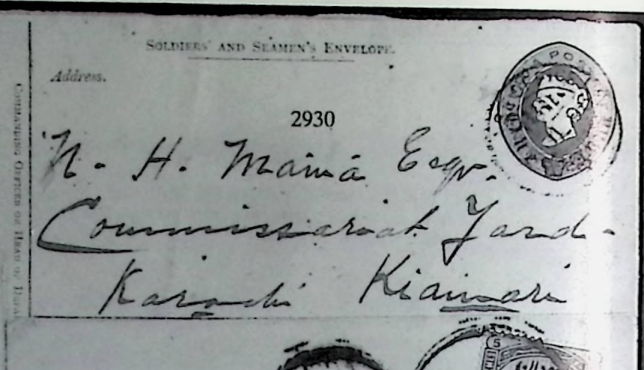 SOLDIERS' AND SEAMEN'S ENVELOPE.
Address.
2930
N. H. Mama Esqr.
Commissariat Yard-
Karachi Kiamari
COMMANDING OFFICER OR HEAD OF